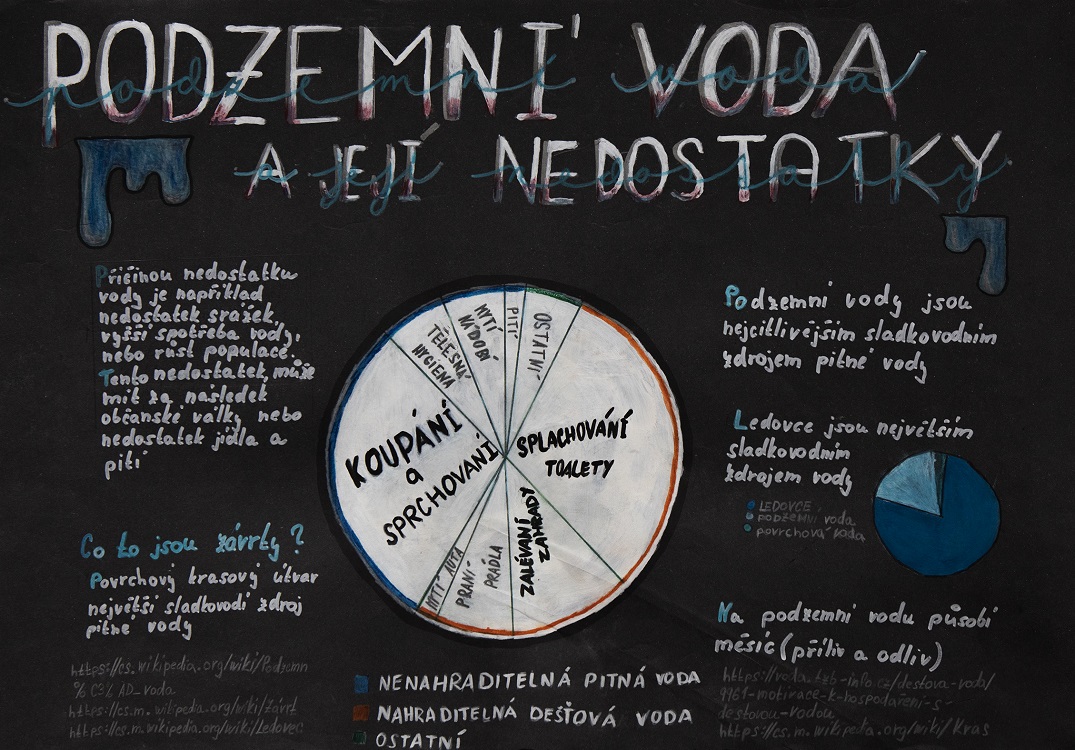 PODZEMNÍ VODA
podzemní voda
A JEJÍ NEDOSTATKY
a její nedostatky
Příčinou nedostatku
vody je například
nedostatek srážek,
vyšší spotřeba vody,
nebo růst populace.
Tento nedostatek, může
mít za následek
občanské války nebo
nedostatek jídla a
pití
Co to jsou závrty?
Povrchový krasový útvar
největší sladkovodí zdroj
pitné vody
https://cs.wikipedia.org/wiki/Podzemn
%C3%AD_voda
https://cs.m.wikipedia.org/wiki/Závrt
https://cs.m.wikipedia.org/wiki/Ledovec
MYTÍ
NÁDOBÍ
PITÍ
OSTATNÍ
TĚLESNÁ
HYGIENA
KOUPÁNÍ
a
SPRCHOVANÍ
SPLACHOVÁNÍ
TOALETY
MYTÍ AUTA
PRANÍ
PRÁDLA
ZALÉVANÍ
ZAHRADY
NENAHRADITELNÁ PITNÁ VODA
NAHRADITELNÁ DEŠŤOVÁ VODA
OSTATNÍ
Podzemní vody jsou
nejcitlivějším sladkovodním
zdrojem pitné vody
Ledovce jsou největším
sladkovodním
zdrojem vody
LEDOVCE
podzemní voda
povrchová voda
Na podzemní vodu působí
měsíc (příliv a odliv)
https://voda.tzb-info.cz/destova-voda/
9961-motivace-k-hospodareni-s-
destovou-vodou
https://cs.m.wikipedia.org/wiki/Kras